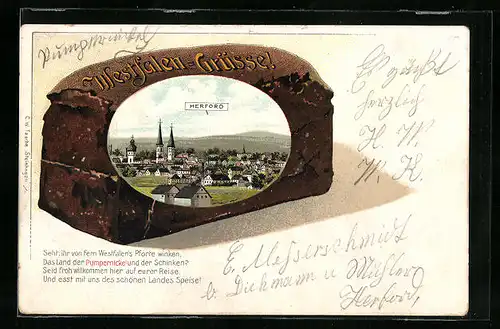 Pumpernickel
Westfalen=Grüsse!
HERFORD
Es grüßt
herzlich
H. W.
W. K.
Seht, ihr von fern Westfalen's Pforte winken,
Das Land der Pumpernickel und der Schinken?
Seid froh willkommen hier auf eurer Reise
Und esst mit uns des schönen Landes Speise!
E. Messerschmidt
b. Diekmann u
Herford,